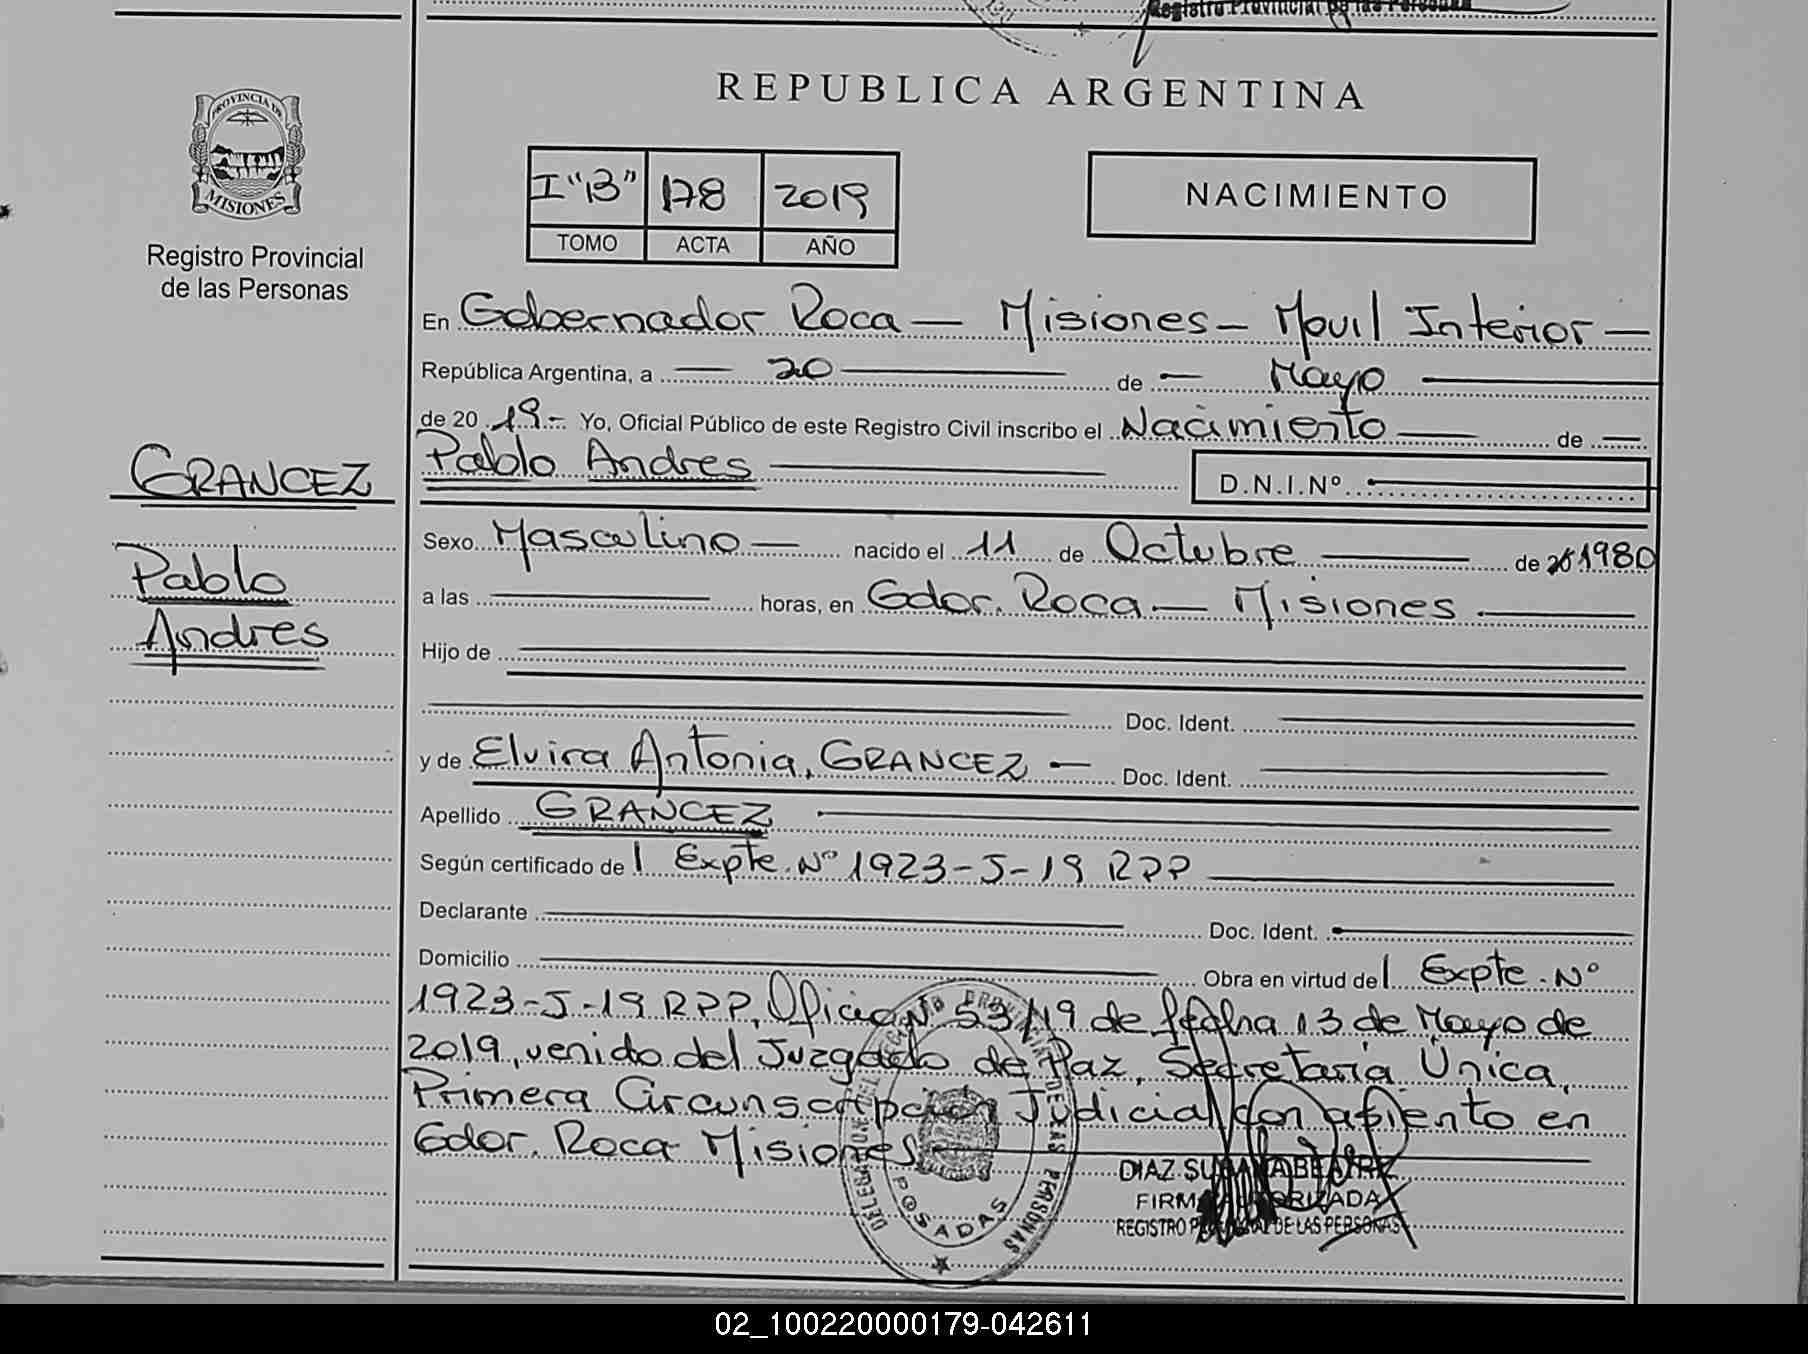 Registro Provincial de las Personas
PROVINCIA DE
MISIONES
Registro Provincial
de las Personas
REPUBLICA ARGENTINA
I "B" 178 2019
TOMO ACTA AÑO
NACIMIENTO
En Gobernador Roca — Misiones — Movil Interior —
República Argentina, a — 20 — de — Mayo —
de 20 19.- Yo, Oficial Público de este Registro Civil inscribo el Nacimiento — de —
Pablo Andres — D.N.I.Nº —
GRANCEZ
Pablo
Andres
Sexo Masculino — nacido el 11 de Octubre — de 1980
a las — horas, en Gdor. Roca — Misiones —
Hijo de —
— Doc. Ident. —
y de Elvira Antonia, GRANCEZ — Doc. Ident. —
Apellido GRANCEZ —
Según certificado de | Expte. Nº 1923-J-19 RPP —
Declarante — Doc. Ident. —
Domicilio — Obra en virtud de | Expte. Nº
1923-J-19 RPP, Oficio Nº 53/19 de fecha 13 de Mayo de
2019, venido del Juzgado de Paz, Secretaria Única,
Primera Circunscripción Judicial con asiento en
Gdor. Roca Misiones —
DELEGACION DEL REGISTRO PROVINCIAL DE LAS PERSONAS
POSADAS
DIAZ SUSANA BEATRIZ
FIRMA AUTORIZADA
REGISTRO PROVINCIAL DE LAS PERSONAS
02_100220000179-042611